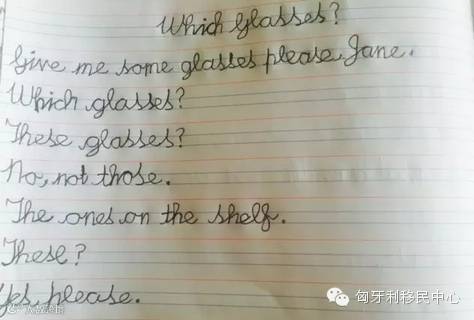 Which glasses?
Give me some glasses please, Jane.
Which glasses?
These glasses?
No, not those.
The ones on the shelf.
These?
Yes, please.
匈牙利移民中心